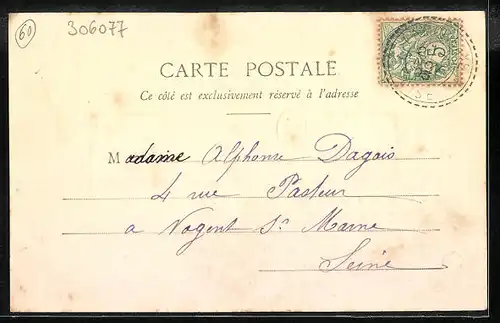 60
306077
CARTE POSTALE
Ce côté est exclusivement réservé à l'adresse
Madame Alphonse Dagois
4 rue Pasteur
a Nogent S. Marne
Seine